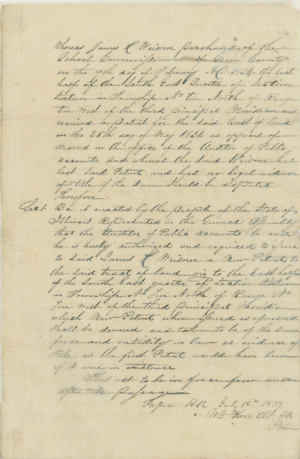 Whereas James R Weisner purchased of the
School Commissioner of County
on the day of February AD 1836 the east
half of the South East Quarter of Section
Sixteen in Township No Ten North of Range
Ten West of the third Principal Meridian and
received a patent for the said tract of land
on the 28th day of May 1836 as appears of
record in the office of the Auditor of Public
accounts and whereas the said Weisner has
lost said Patent and has no legal evidence
of title if the same should be disputed
Therefore
Sec 1 Be it enacted by the people of the State of
Illinois Represented in the General Assembly
that the Auditor of Public accounts be and
he is hereby authorized and required to issue
to said James R Weisner a New Patent to
the said tract of land viz to the East half
of the South East quarter of Section Sixteen
in Township No Ten North of Range No
Ten West of the third principal Meridian
which New Patent when issued as aforesaid
shall be deemed and taken to be of the same
force and validity in law as evidence of
title as the first Patent would have been
if it were in existence
This act to be in force from and
after its passage
H R July 18th 1837